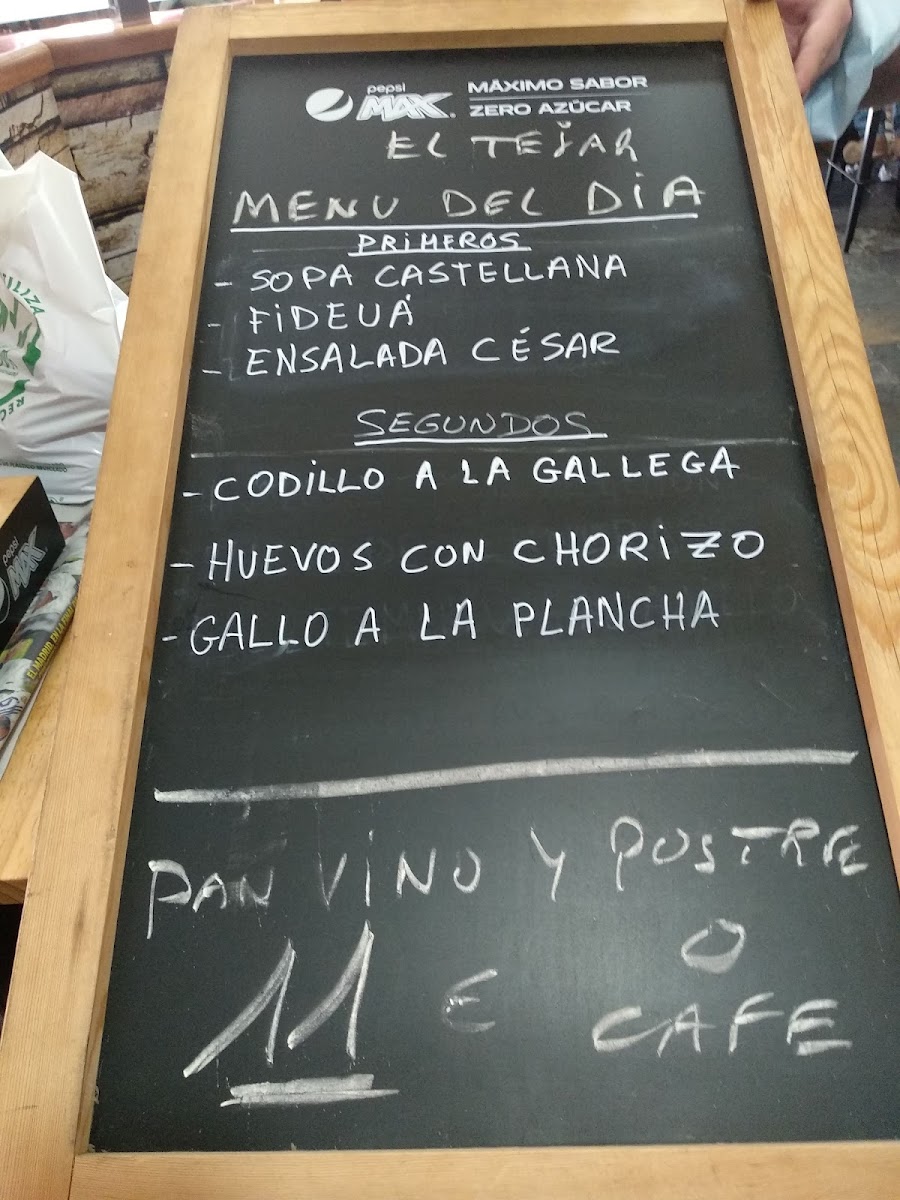 pepsi MAX. MÁXIMO SABOR
ZERO AZÚCAR
EL TEJAR
MENU DEL DIA
PRIMEROS
- SOPA CASTELLANA
- FIDEUÁ
- ENSALADA CÉSAR
SEGUNDOS
- CODILLO A LA GALLEGA
- HUEVOS CON CHORIZO
- GALLO A LA PLANCHA
PAN VINO Y POSTRE
O
11 € CAFE
pepsi
MAX